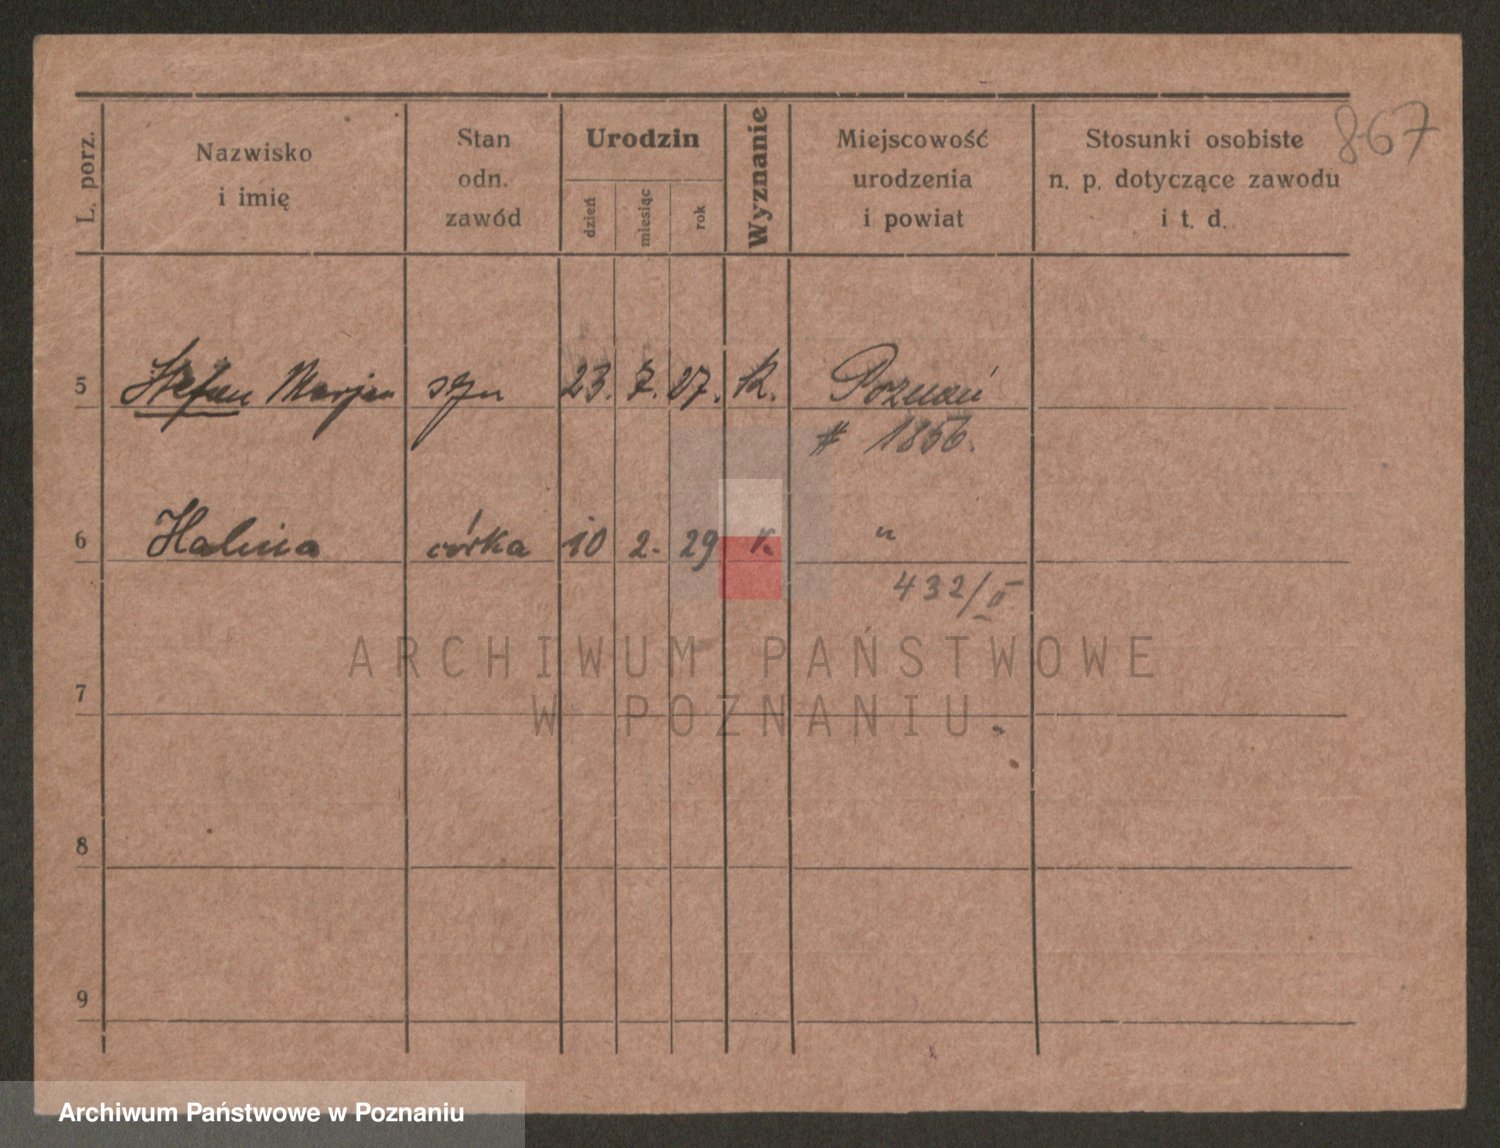 867
L. porz.
Nazwisko
i imię
Stan
odn.
zawód
Urodzin
dzień
miesiąc
rok
Wyznanie
Miejscowość
urodzenia
i powiat
Stosunki osobiste
n. p. dotyczące zawodu
i t. d.
5 Stefan Marjan syn 23. 7. 27. k. Poznań
# 1856.
6 Halina córka 10 2. 29 k. "
432/II
7
8
9
ARCHIWUM PAŃSTWOWE
W POZNANIU
Archiwum Państwowe w Poznaniu